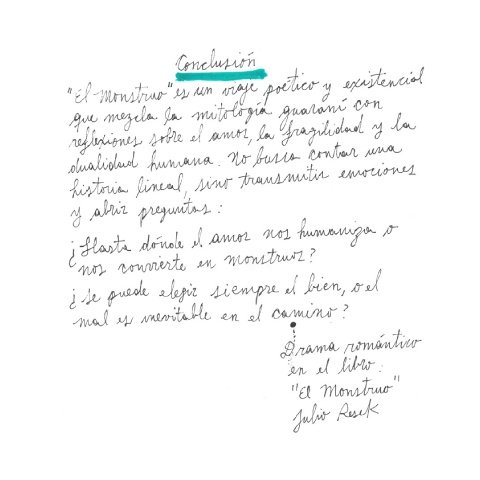 Conclusión
"El Monstruo" es un viaje poético y existencial
que mezcla la mitología guaraní con
reflexiones sobre el amor, la fragilidad y la
dualidad humana. No busca contar una
historia lineal, sino transmitir emociones
y abrir preguntas:
¿Hasta dónde el amor nos humaniza o
nos convierte en monstruos?
¿se puede elegir siempre el bien, o el
mal es inevitable en el camino?
Drama romántico
en el libro:
"El Monstruo"
Julio Resek